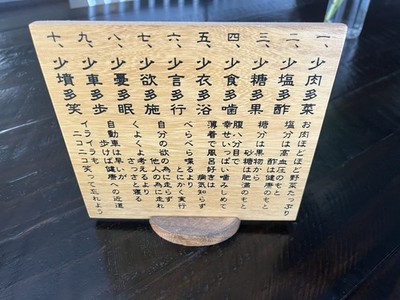 一、少肉多菜
お肉ほど野菜たっぷり
二、少塩多酢
塩分は高血圧のもと
酢は健康のもと
三、少糖多果
糖分は果物から
砂糖は肥満のもと
四、少食多噛
腹八分目で
幸せいっぱい噛みしめて
五、少衣多浴
薄着で風呂好きは
病気知らず
六、少言多行
べらべら喋るより
とにかく実行
七、少欲多施
自分の欲の為に走らず
他人の為に走れ
八、少憂多眠
くよくよ考えるより
さっさと寝る
九、少車多歩
自動車は早いが
歩けば健康への近道
十、少憤多笑
イライラも
ニコニコ笑って忘れよう